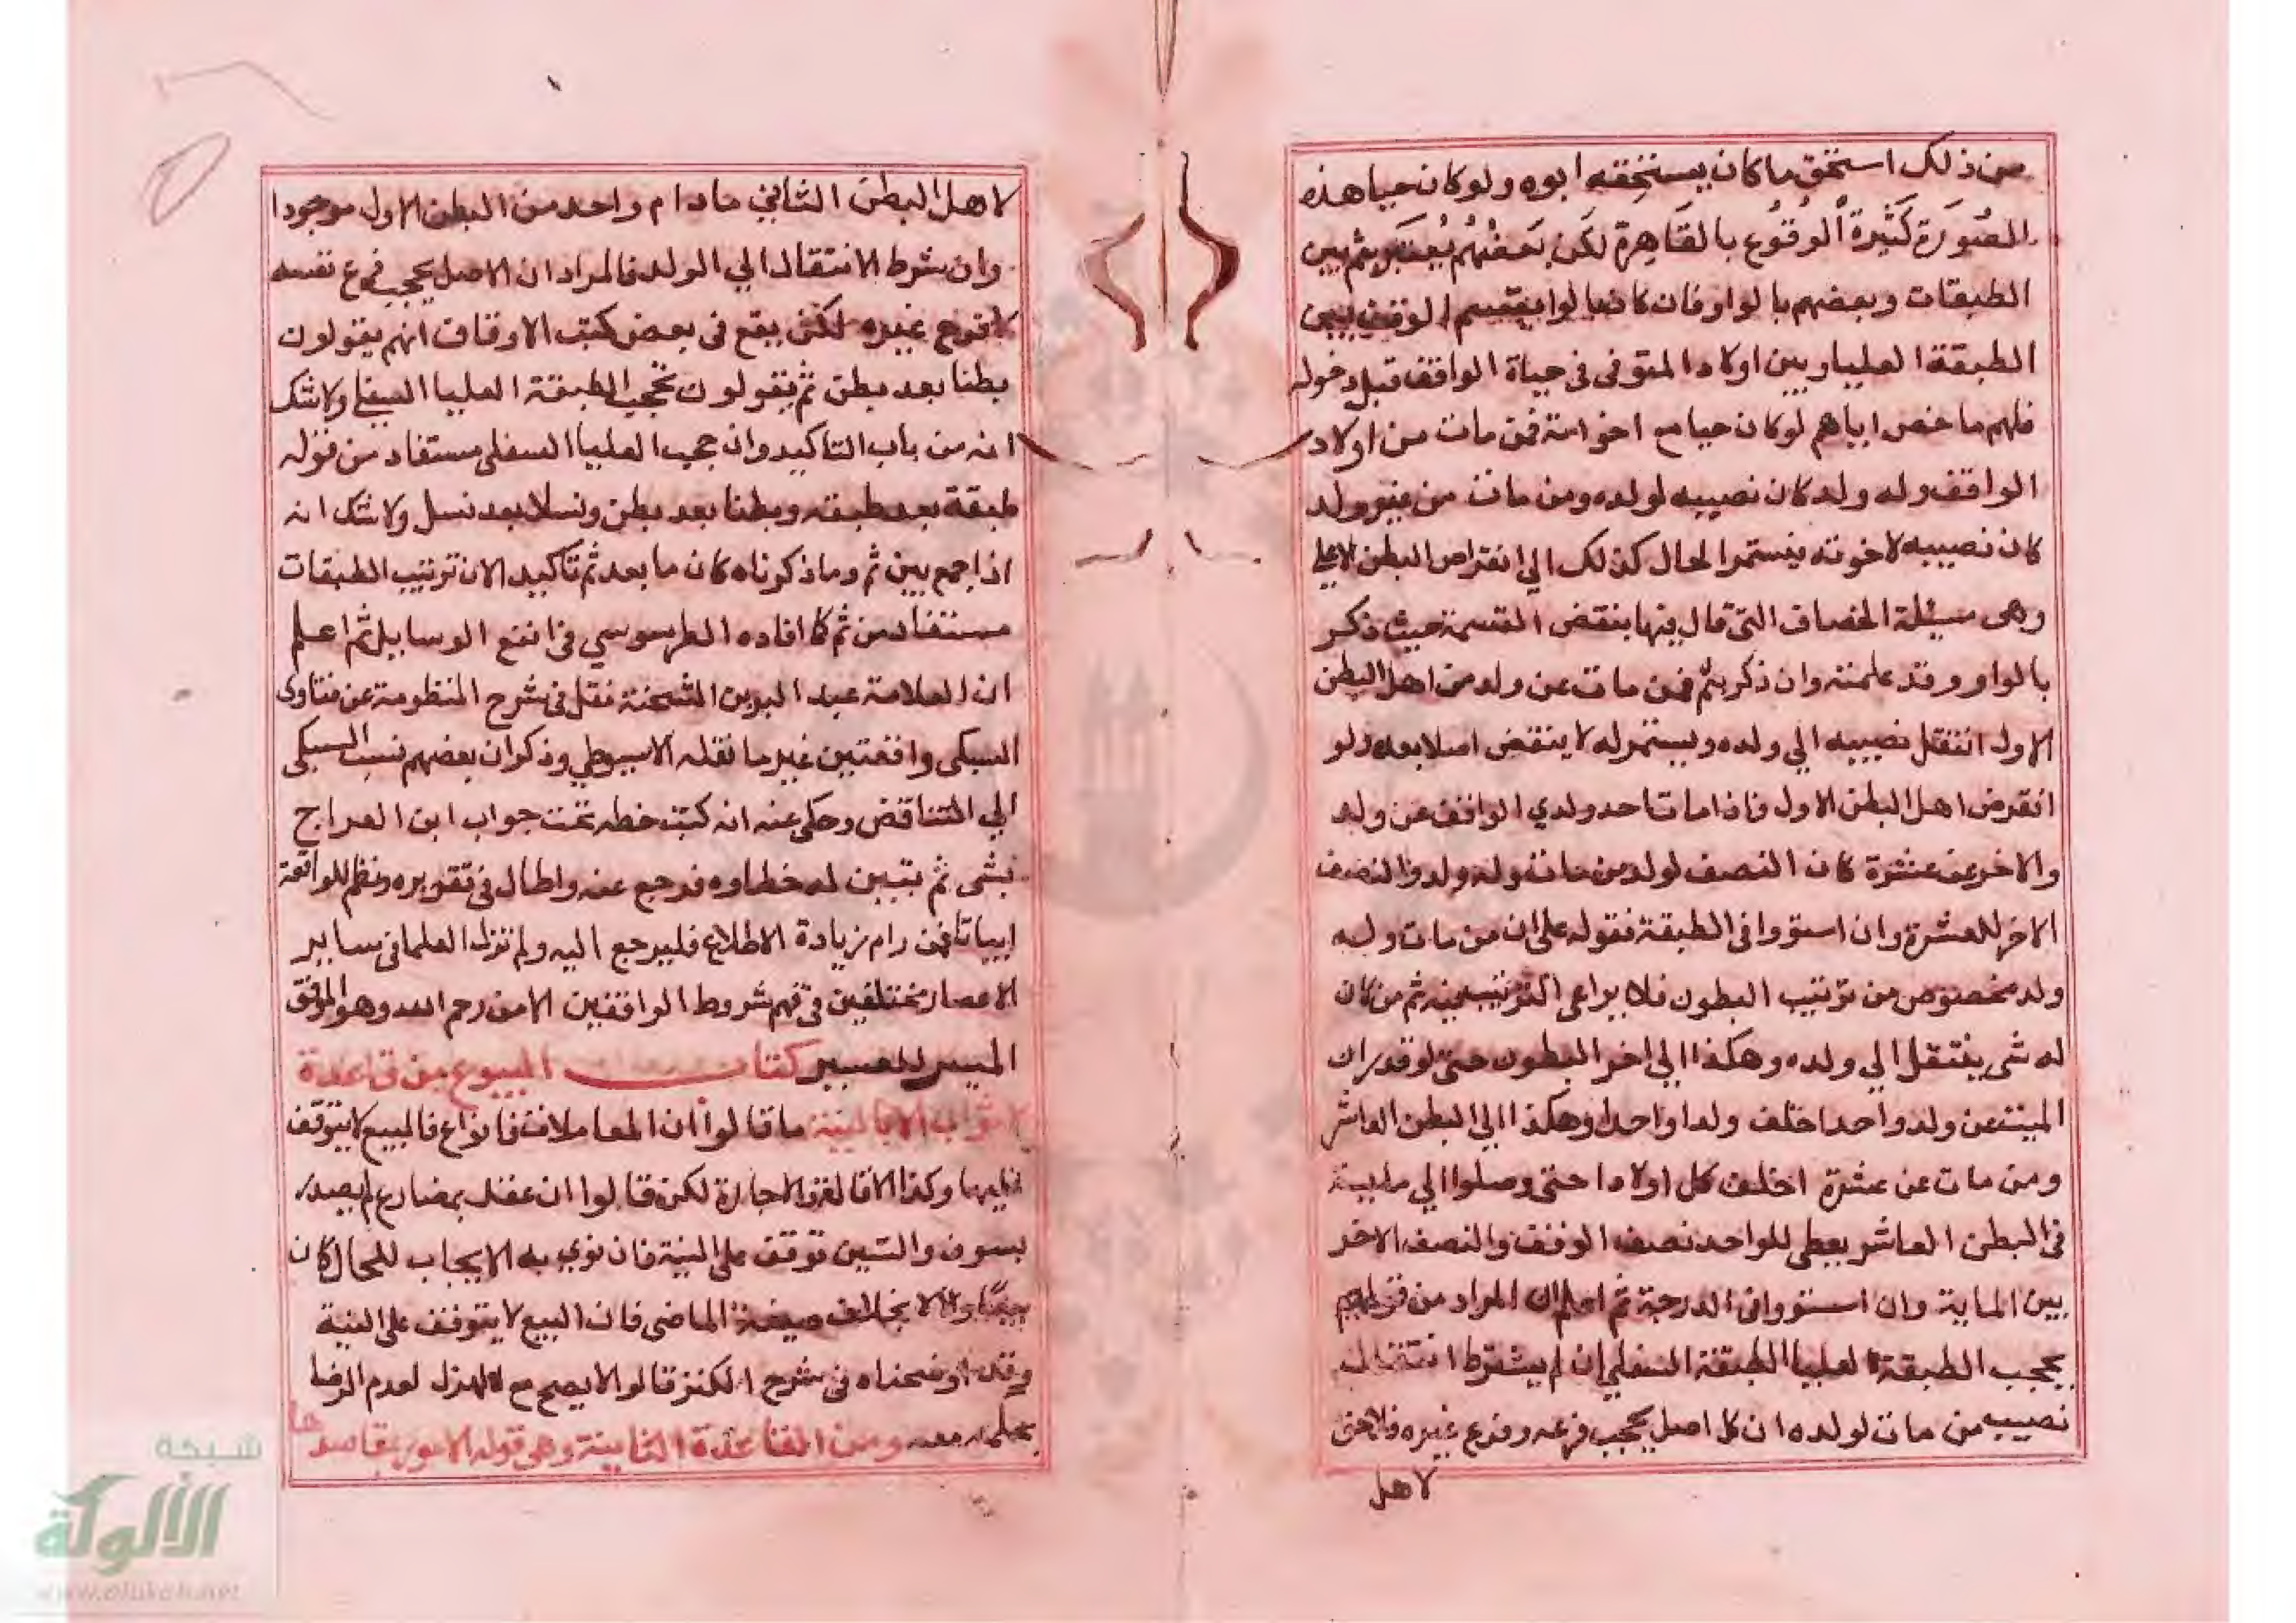 من ذلك استحق ما كان يستحقه ابوه ولو كان حيا هذه
الصُورَة كَثيرة الُوقُوع بالقَاهِرة لكن بَعضُهُم يُعبَر بثم بين
الطبقات وبعضهم بالواو فان كان بالواو يقسم الوقف بين
الطبقة العليا وبين اولاد المتوفى فى حياة الواقف قبل دخوله
فلهم ما خص اباهم لو كان حيا مع اخوته فمن مات من اولاد
الواقف وله ولد كان نصيبه لولده ومن مات من غير ولد
كان نصيبه لاخوته فيستمر الحال كذلك الي انقراض البطن الاعلى
وهى مسئلة الخصاف التى قال فيها بنقض القسمة حيث ذكر
بالواو وقد علمته وان ذكر بثم فمن مات عن ولد من اهل البطن
الاول انتقل نصيبه الي ولده ويستمر له لا ينتقض اصلا بعده ولو
انقرض اهل البطن الاول فاذا مات احد ولدي الواقف عن ولد
والاخر عن عشرة كان النصف لولد من مات وله ولد والنصف
الاخر للعشرة وان استووا فى الطبقة فقوله على ان من مات وله
ولد مخصوص من ترتيب البطون فلا يراعى الترتيب فيه ثم من كان
له شى ينتقل الي ولده وهكذا الي اخر البطون حتى لو قدر ان
الميت عن ولد واحد اخلف ولدا واحدا وهكذا الي البطن العاشر
ومن مات عن عشرة اخلف كل اولادا حتى وصلوا الي ماية
فى البطن العاشر يعطى للواحد نصف الوقف والنصف الاخر
بين الماية وان استووا فى الدرجة ثم اعلم ان المراد من قولهم
يحجب الطبقة العليا الطبقة السفلي ان لم يشترط انتقال
نصيب من مات لولده ان كل اصل يحجب فرعه وفرع غيره فلا حق
لاهل
لاهل البطن الثاني ما دام واحد من البطن الاول موجودا
وان شرط الانتقال الي الولد فالمراد ان الاصل يحجب فرع نفسه
لا فرع غيره لكن يقع فى بعض كتب الاوقاف انهم يقولون
بطنا بعد بطن ثم يقولون تحجب الطبقة العليا السفلي ولا شك
انه من باب التاكيد وان حجب العليا السفلى مستفاد من قوله
طبقة بعد طبقة وبطنا بعد بطن ونسلا بعد نسل ولا شك انه
اذا جمع بين ثم وما ذكرناه كان ما بعد ثم تاكيد الان ترتيب الطبقات
مستفاد من ثم كما افاده الطرسوسي في انفع الوسايل ثم اعلم
ان العلامة عبد البر بن الشحنة نقل فى شرح المنظومة عن فتاوى
السبكى واقعتين غير ما نقله الاسيوطي وذكر ان بعضهم نسب السبكى
الي التناقض وحكى عنه انه كتب خطه تحت جواب ابن القماح
بشى ثم تبين له خطاوه فرجع عنه واطال فى تقريره ونظم للواقعة
ابياتا فمن رام زيادة الاطلاع فليرجع اليه ولم تزل العلما فى ساير
الاعصار مختلفين فى فهم شروط الواقفين الا من رحم الله وهو الموفق
الميسر للعسير كتاب البيوع من قاعدة
لا ثواب الا بالنية ما قالوا ان المعاملات فانواع فالبيع لا يتوقف
عليها وكذا الاقالة والاجارة لكن قالوا ان عقد بمضارع لم يصدر
بسوف والسين توقف على النية فان نوي به الايجاب للحال كان
بيعا والا لا بخلاف صيغة الماضى فان البيع لا يتوقف على النية
وقد اوضحناه فى شرح الكنز قالوا لا يصح مع الهزل لعدم الرضا
بحكمه معه ومن القاعدة الثانية وهى قوله الامور بمقاصدها
شبكة
الألوكة
www.alukah.net